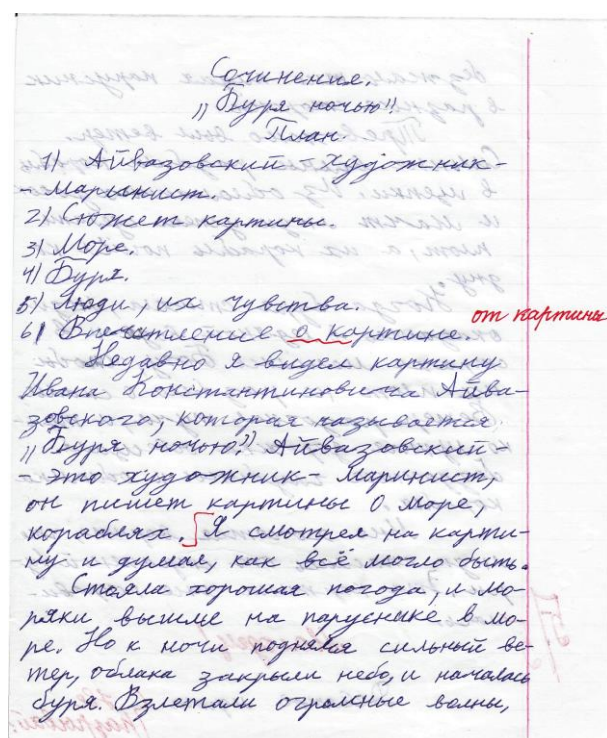 Сочинения.
„Буря ночью"
План.
1) Айвазовский - художник-
- Марынист.
2) Сюжет картины.
3) Море.
4) Буря.
5) Люди, их чувства.
от картины
6) Впечатление о картине.
Недавно я видел картину
Ивана Константиновича Айва-
зовского, которая называется
„Буря ночью!" Айвазовский -
- это художник - Маринист,
он пишет картины о море,
кораблях. Я смотрел на карти-
ну и думал, как всё могло быть.
Стояла хорошая погода, и мо-
ряки вышли на паруснике в мо-
ре. Но к ночи поднялся сильный ве-
тер, облака закрыли небо, и началась
буря. Взлетали огромные волны,